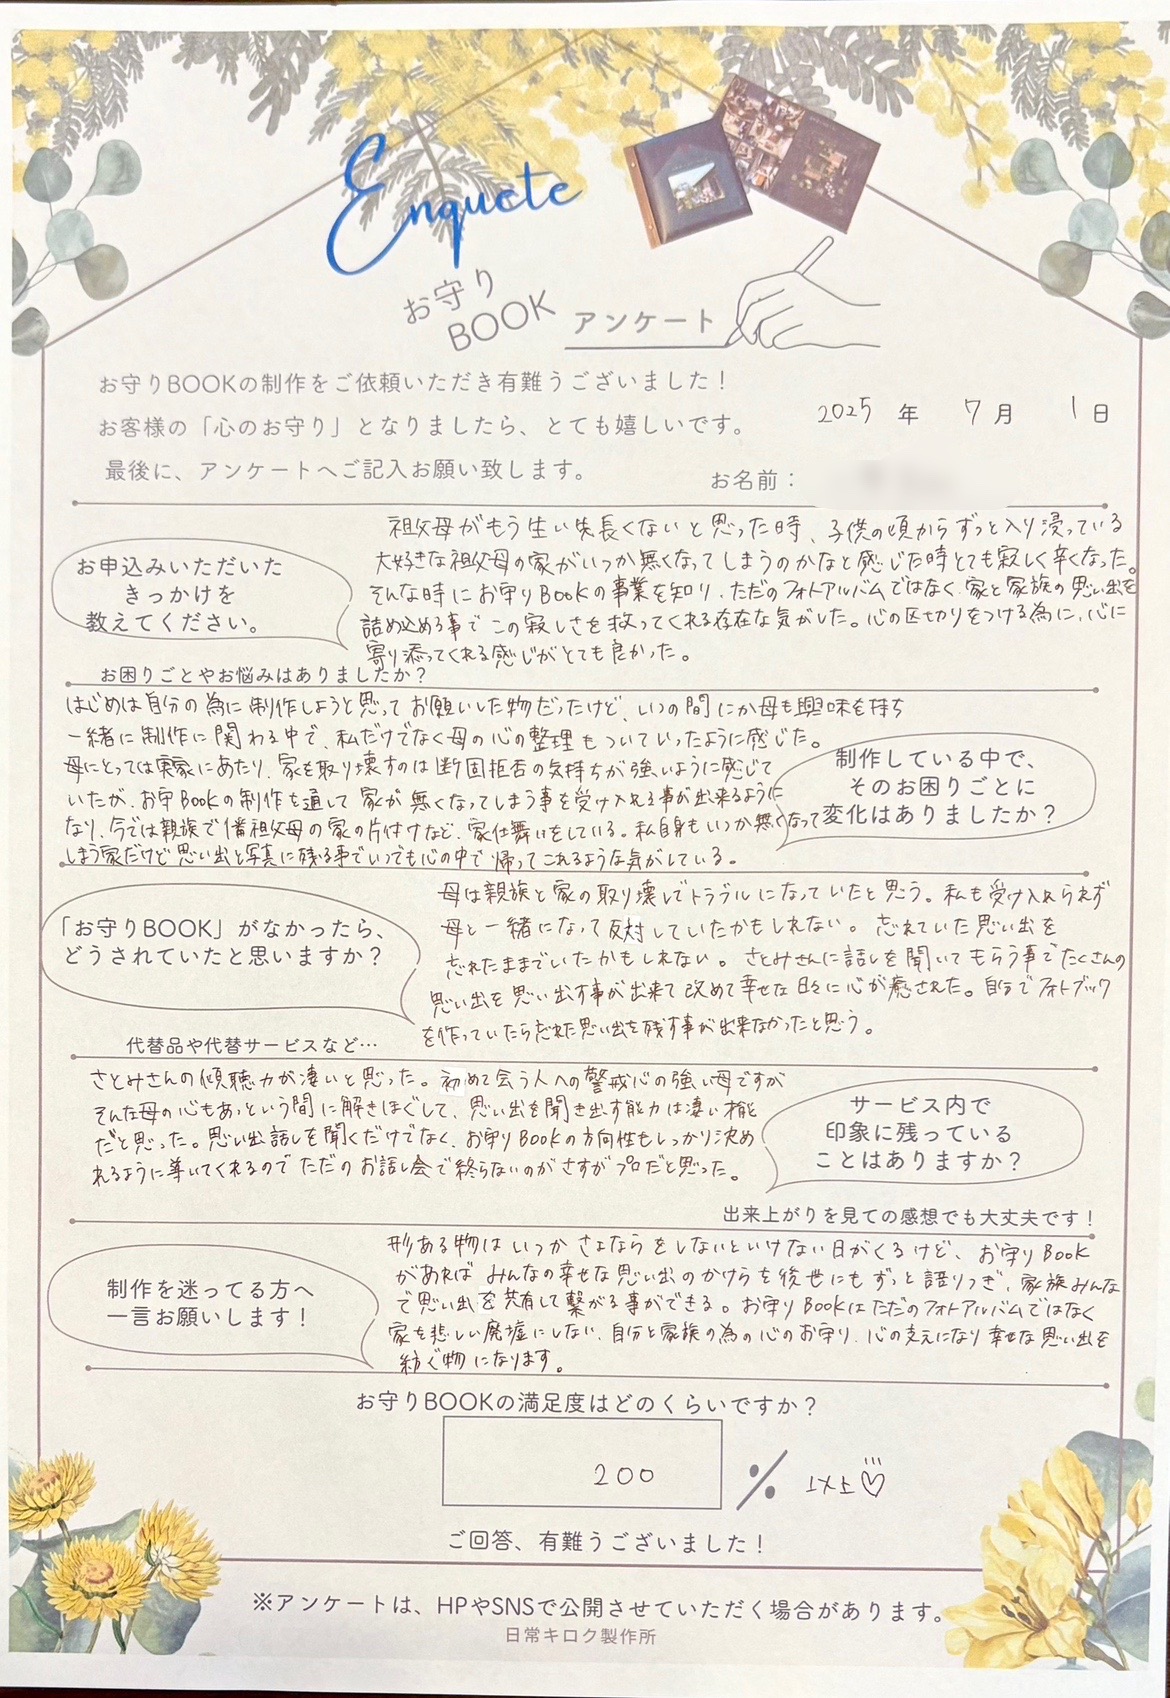 Enquete
お守り
BOOK
アンケート
お守りBOOKの制作をご依頼いただき有難うございました！
お客様の「心のお守り」となりましたら、とても嬉しいです。
2025 年 7 月 1 日
最後に、アンケートへご記入お願い致します。
お名前：
お申込みいただいた
きっかけを
教えてください。
祖父母がもう生い先長くないと思った時、子供の頃からずっと入り浸っている
大好きな祖父母の家がいつか無くなってしまうのかなと感じた時とても寂しく辛くなった。
そんな時にお守りBookの事業を知り、ただのフォトアルバムではなく、家と家族の思い出を
詰め込める事でこの寂しさを救ってくれる存在な気がした。心の区切りをつける為に、心に
寄り添ってくれる感じがとても良かった。
お困りごとやお悩みはありましたか？
はじめは自分の為に制作しようと思ってお願いした物だったけど、いつの間にか母も興味を持ち
一緒に制作に関わる中で、私だけでなく母の心の整理もついていったように感じた。
母にとっては実家にあたり、家を取り壊すのは断固拒否の気持ちが強いように感じて
いたが、お守Bookの制作を通して家が無くなってしまう事を受け入れる事が出来るように
なり、今では親族で皆祖父母の家の片付けなど、家仕舞いをしている。私自身もいつか無くなって
しまう家だけど思い出と写真に残る事でいつでも心の中で帰ってこれるような気がしている。
制作している中で、
そのお困りごとに
変化はありましたか？
「お守りBOOK」がなかったら、
どうされていたと思いますか？
母は親族と家の取り壊しでトラブルになっていたと思う。私も受け入れられず
母と一緒になって反対していたかもしれない。忘れていた思い出を
忘れたままでいたかもしれない。さとみさんに話しを聞いてもらう事でたくさんの
思い出を思い出す事が出来て改めて幸せな日々に心が癒された。自分でフォトブック
を作っていたら忘れた思い出を残す事が出来なかったと思う。
代替品や代替サービスなど…
さとみさんの傾聴力が凄いと思った。初めて会う人への警戒心の強い母ですが
そんな母の心もあっという間に解きほぐして、思い出を聞き出す能力は凄い才能
だと思った。思い出話しを聞くだけでなく、お守りBookの方向性もしっかり決め
れるように導いてくれるのでただのお話し会で終らないのがさすがプロだと思った。
サービス内で
印象に残っている
ことはありますか？
出来上がりを見ての感想でも大丈夫です！
制作を迷ってる方へ
一言お願いします！
形ある物はいつかさよならをしないといけない日がくるけど、お守りBook
があればみんなの幸せな思い出のかけらを後世にもずっと語りつぎ、家族みんな
で思い出を共有して繋がる事ができる。お守りBookはただのフォトアルバムではなく
家を悲しい廃墟にしない、自分と家族の為の心のお守り、心の支えになり幸せな思い出を
紡ぐ物になります。
お守りBOOKの満足度はどのくらいですか？
200 % 以上♡
ご回答、有難うございました！
※アンケートは、HPやSNSで公開させていただく場合があります。
日常キロク製作所